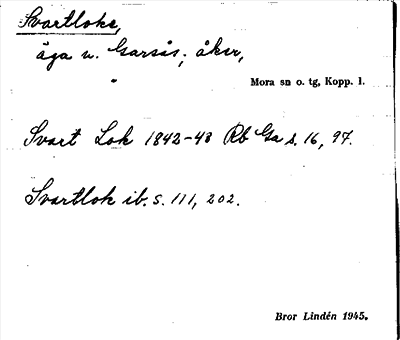 Svartloke,
äga n. Garsås; åker,
"
Mora sn o. tg, Kopp. l.
Svart Lok 1842-43 Rb Ga s. 16, 97.
Svartlok ib. s. 111, 202.
Bror Lindén 1945.